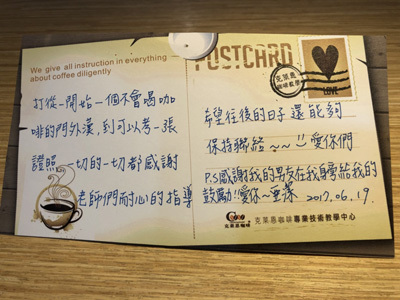 We give all instruction in everything
about coffee diligently
打從一開始一個不會喝咖
啡的門外漢,到可以考一張
證照 一切的一切都感謝
老師們耐心的指導
POSTCARD
LOVE
希望往後的日子還能夠
保持聯絡~~!! 愛你們
P.S感謝我的男友在我身旁給我的
鼓勵!!愛你 2017.06.19.
克萊恩咖啡
克萊恩咖啡專業技術教學中心